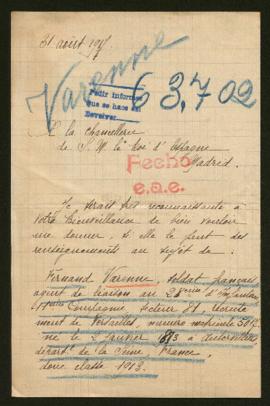 31 août 1917
Varenne
63,702
Pedir informes
que se hace al
Devolver
A la Chancellerie
de S. M. le Roi d'Espagne
Madrid.
Fecho
e.a.e.
Je serais très reconnaissante à
votre bienveillance de bien vouloir
me donner, si elle le peut des
renseignements au sujet de
Fernand Varenne, soldat français
agent de liaison au 28 d'Infanterie
Compagnie, Secteur 98, recrute
ment de Versailles, numéro matricule
né le 2 Janvier 1893 à
départ. de la Seine France,
donc classe 1913.